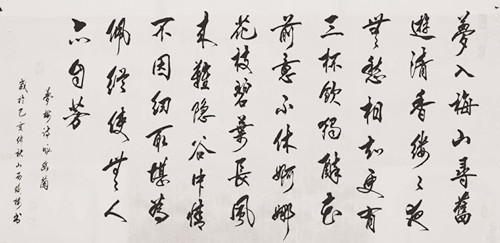 夢入梅山尋舊
遊清香縷々夜
無愁相知更有
三杯飲獨醉花
前意不休婀娜
花枝碧葉長風
來難隱谷中情
不因紉取堪為
佩縱使無人
亦自芳
詩詠幽蘭
歲於己亥仲秋山西